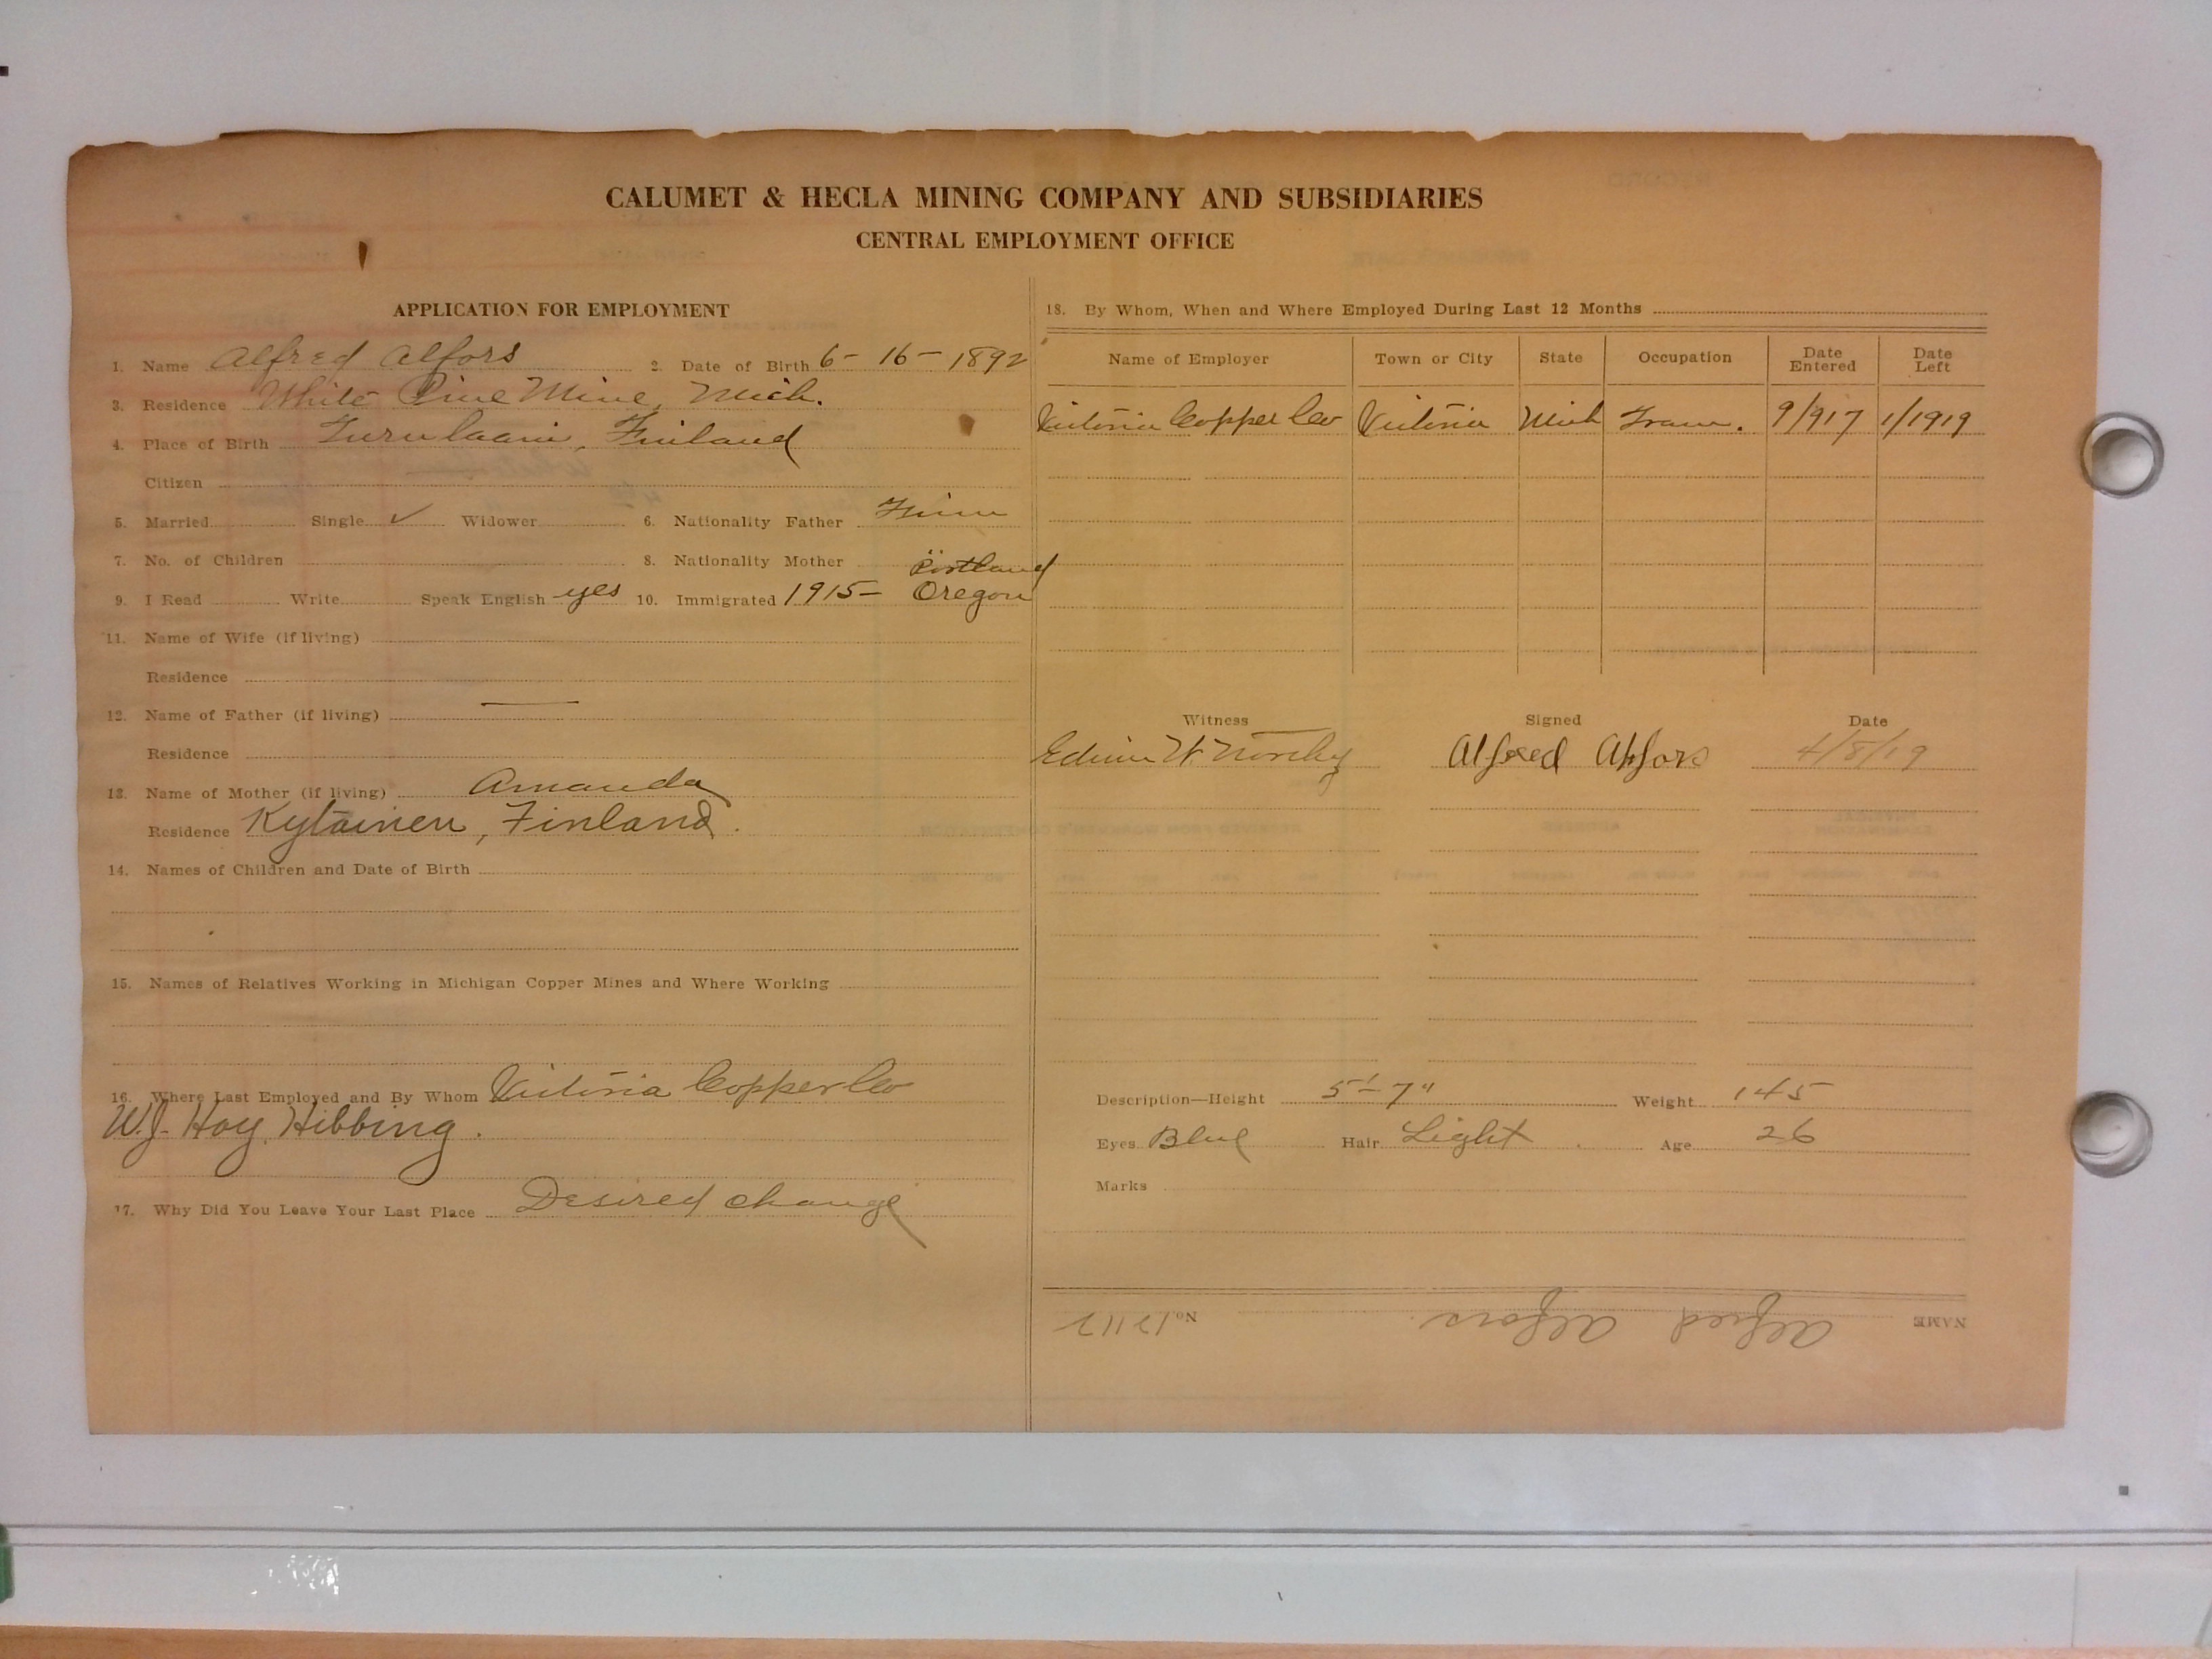 CALUMET & HECLA MINING COMPANY AND SUBSIDIARIES
CENTRAL EMPLOYMENT OFFICE
APPLICATION FOR EMPLOYMENT
1. Name Alfred Alfors 2. Date of Birth 6-16-1892
3. Residence White Pine Mine, Mich.
4. Place of Birth Finland
Citizen
5. Married Single ✓ Widower 6. Nationality Father Finn
7. No. of Children 8. Nationality Mother
9. I Read Write Speak English yes 10. Immigrated 1915- Portland Oregon
11. Name of Wife (if living)
Residence
12. Name of Father (if living) —
Residence
13. Name of Mother (if living) Amanda
Residence Kytäinen, Finland.
14. Names of Children and Date of Birth
15. Names of Relatives Working in Michigan Copper Mines and Where Working
16. Where Last Employed and By Whom Victoria Copper Co
W.J. Hoy, Hibbing.
17. Why Did You Leave Your Last Place Desired change
18. By Whom, When and Where Employed During Last 12 Months
Name of Employer Town or City State Occupation Date Entered Date Left
Victoria Copper Co Victoria Mich Tram. 9/917 1/1919
Witness Signed Date
Edwin W. Alfred Alfors 4/8/19
Description—Height 5'-7" Weight 145
Eyes Blue Hair Light Age 26
Marks
NAME Alfred Alfors No. 12112